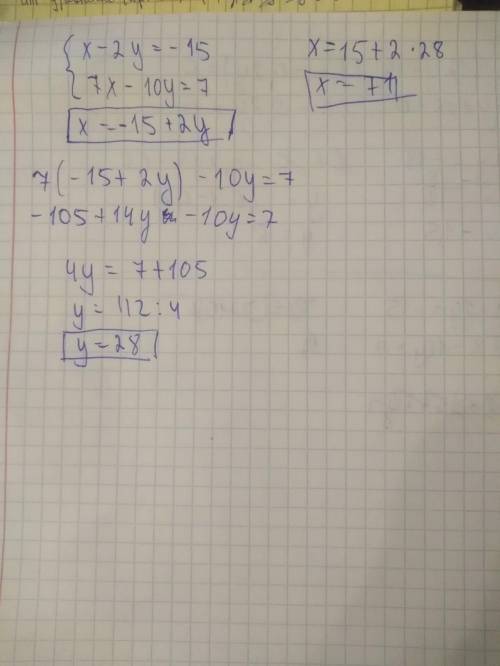 x - 2y = - 15
7x - 10y = 7
x = -15 + 2y
7(-15 + 2y) - 10y = 7
-105 + 14y - 10y = 7
4y = 7 + 105
y = 112 : 4
y = 28
x = 15 + 2 · 28
x = 71